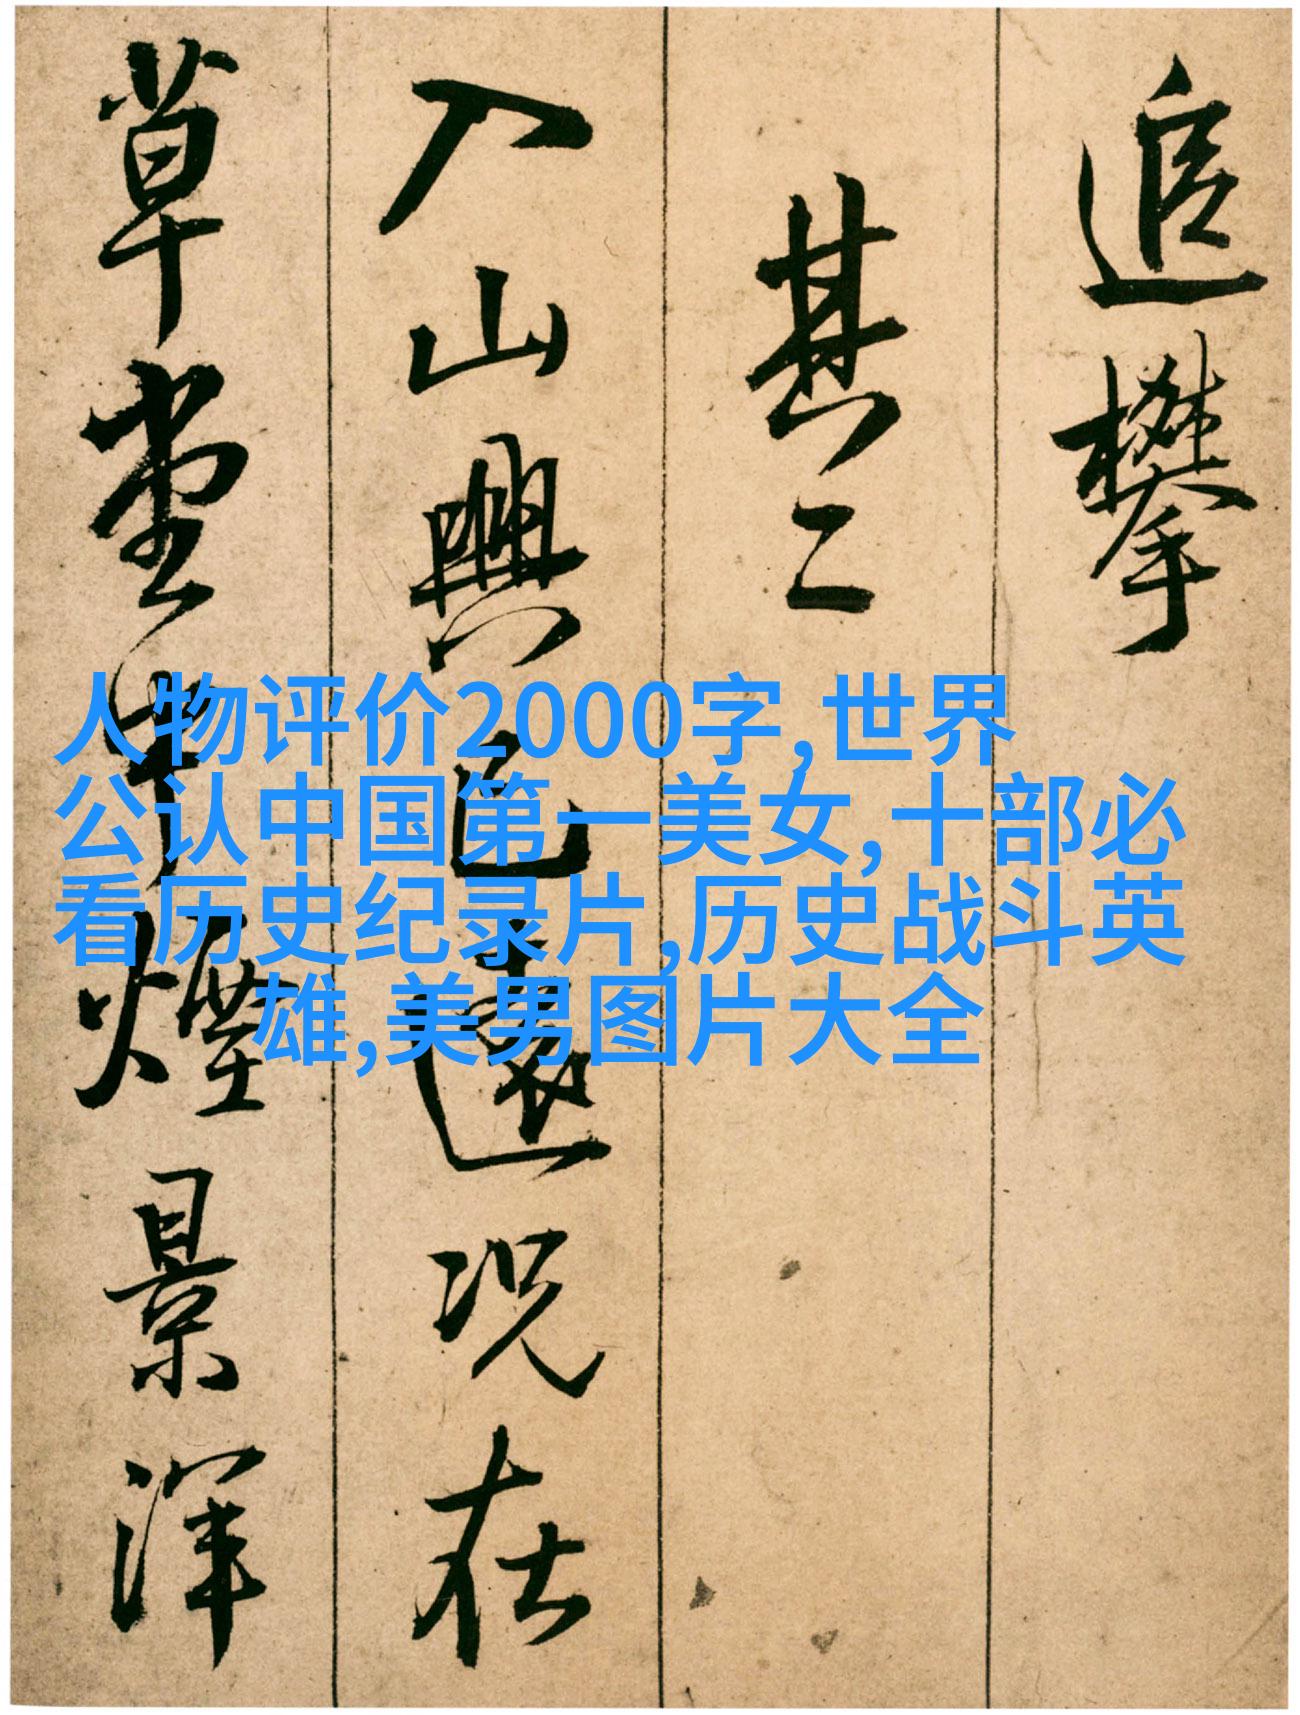 追攀
其二
入山興已遠況在
草堂中煙景渾
人物评价2000字,世界
公认中国第一美女,十部必
看历史纪录片,历史战斗英
雄,美男图片大全